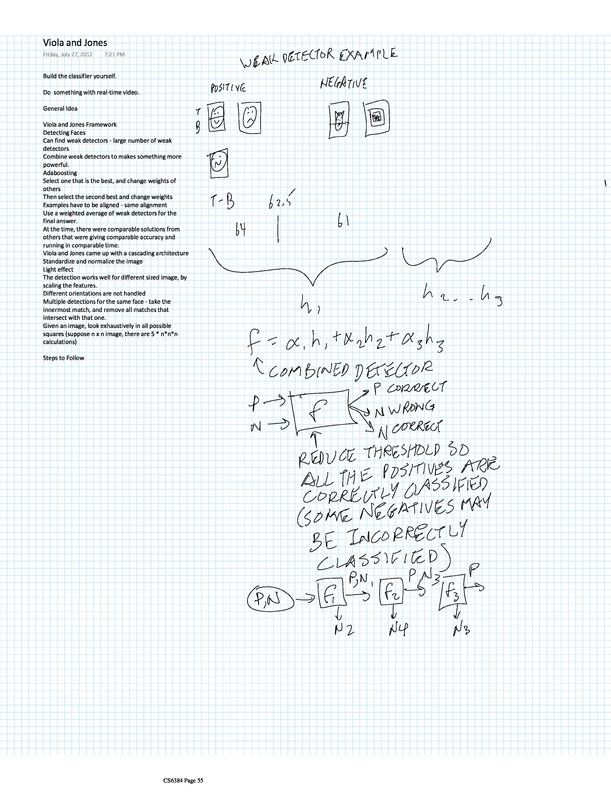 Viola and Jones
Friday, July 27, 2012 7:21 PM
Build the classifier yourself.
Do something with real-time video.
General Idea
Viola and Jones Framework
Detecting Faces
Can find weak detectors - large number of weak
detectors
Combine weak detectors to makes something more
powerful.
Adaboosting
Select one that is the best, and change weights of
others
Then select the second best and change weights
Examples have to be aligned - same alignment
Use a weighted average of weak detectors for the
final answer.
At the time, there were comparable solutions from
others that were giving comparable accuracy and
running in comparable time.
Viola and Jones came up with a cascading architecture
Standardize and normalize the image
Light effect
The detection works well for different sized image, by
scaling the features.
Different orientations are not handled
Multiple detections for the same face - take the
innermost match, and remove all matches that
intersect with that one.
Given an image, look exhaustively in all possible
squares (suppose n x n image, there are 5 * n*n*n
calculations)
Steps to Follow
WEAK DETECTOR EXAMPLE
POSITIVE NEGATIVE
T
B
T-B 62.5
64 61
h₁ h₂...h₃
f = α₁h₁+α₂h₂+α₃h₃
COMBINED DETECTOR
P
N
f
P CORRECT
N WRONG
N CORRECT
REDUCE THRESHOLD SO
ALL THE POSITIVES ARE
CORRECTLY CLASSIFIED
(SOME NEGATIVES MAY
BE INCORRECTLY
CLASSIFIED)
P,N f₁ P,N₁ f₂ P,N₃ f₃ P
N₂ N4 N₃
CS6384 Page 55